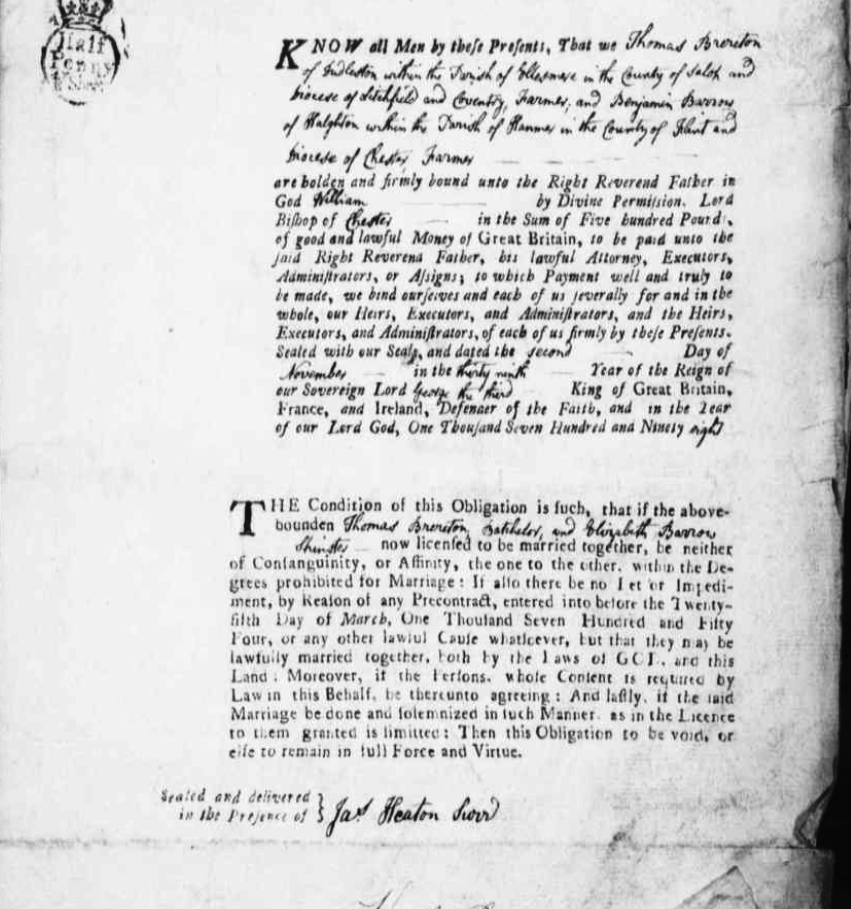 Half
Penny
KNOW all Men by these Presents, That we Thomas Brereton
of within the Parish of Ellesmere in the County of Salop and
Diocese of Litchfield and Coventry, Farmer, and Benjamin Barrow
of Halghton within the Parish of Hanmer in the County of Flint and
Diocese of Chester Farmer
are holden and firmly bound unto the Right Reverend Father in
God William by Divine Permission, Lord
Bishop of Chester in the Sum of Five hundred Pounds,
of good and lawful Money of Great Britain, to be paid unto the
said Right Reverend Father, his lawful Attorney, Executors,
Administrators, or Assigns; to which Payment well and truly to
be made, we bind ourselves and each of us severally for and in the
whole, our Heirs, Executors, and Administrators, and the Heirs,
Executors, and Administrators, of each of us firmly by these Presents.
Sealed with our Seals, and dated the second Day of
November in the thirty ninth Year of the Reign of
our Sovereign Lord George the third King of Great Britain,
France, and Ireland, Defender of the Faith, and in the Year
of our Lord God, One Thousand Seven Hundred and Ninety eight
THE Condition of this Obligation is such, that if the above-
bounden Thomas Brereton, Batchelor, and Elizabeth Barrow
Spinster now licensed to be married together, be neither
of Consanguinity, or Affinity, the one to the other, within the De-
grees prohibited for Marriage: If also there be no Let or Impedi-
ment, by Reason of any Precontract, entered into before the Twenty-
fifth Day of March, One Thousand Seven Hundred and Fifty
Four, or any other lawful Cause whatsoever, but that they may be
lawfully married together, both by the Laws of GOD, and this
Land: Moreover, if the Persons, whose Consent is required by
Law in this Behalf, be thereunto agreeing: And lastly, if the said
Marriage be done and solemnized in such Manner, as in the Licence
to them granted is limitted: Then this Obligation to be void, or
else to remain in full Force and Virtue.
Sealed and delivered
in the Presence of } Jas Heaton Surr